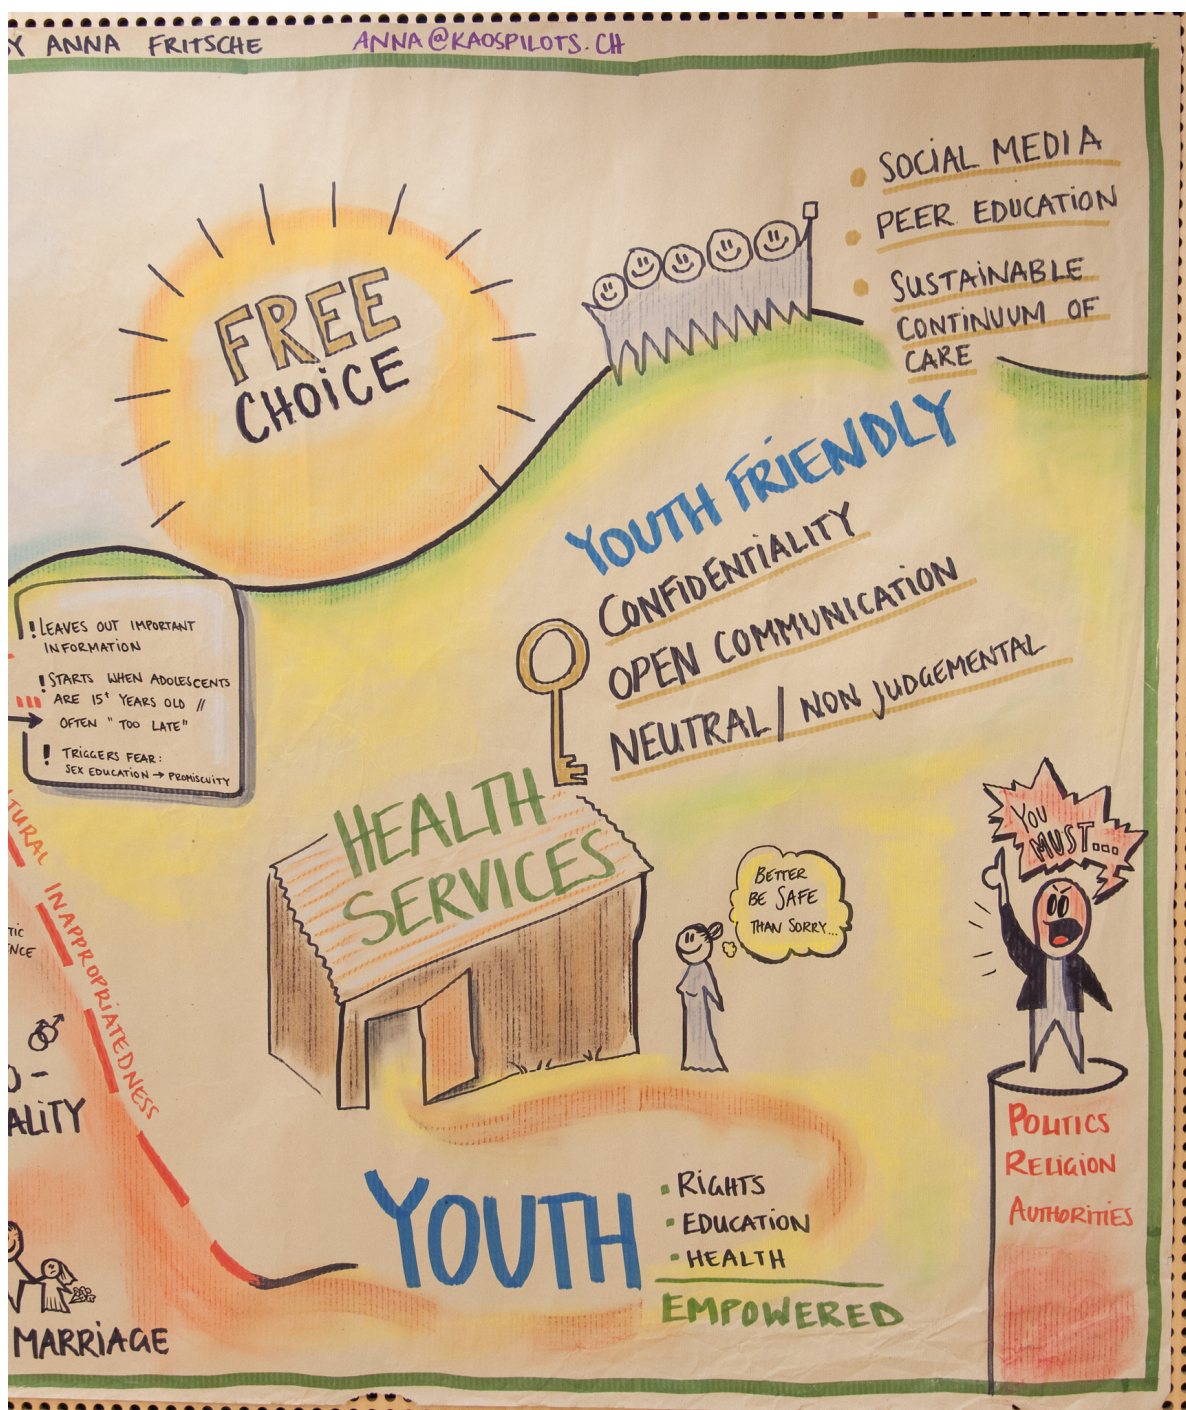 Y ANNA FRITSCHE
ANNA@KAOSPILOTS.CH
FREE
CHOICE
SOCIAL MEDIA
PEER EDUCATION
SUSTAINABLE
CONTINUUM OF
CARE
YOUTH FRIENDLY
CONFIDENTIALITY
OPEN COMMUNICATION
NEUTRAL / NON JUDGEMENTAL
! LEAVES OUT IMPORTANT
INFORMATION
! STARTS WHEN ADOLESCENTS
ARE 15+ YEARS OLD //
OFTEN "TOO LATE"
! TRIGGERS FEAR:
SEX EDUCATION → PROMISCUITY
HEALTH
SERVICES
BETTER
BE SAFE
THAN SORRY...
YOU
MUST...
TURAL INAPPROPRIATEDNESS
TIC
NCE
ALITY
MARRIAGE
YOUTH
• RIGHTS
• EDUCATION
• HEALTH
EMPOWERED
POLITICS
RELIGION
AUTHORITIES